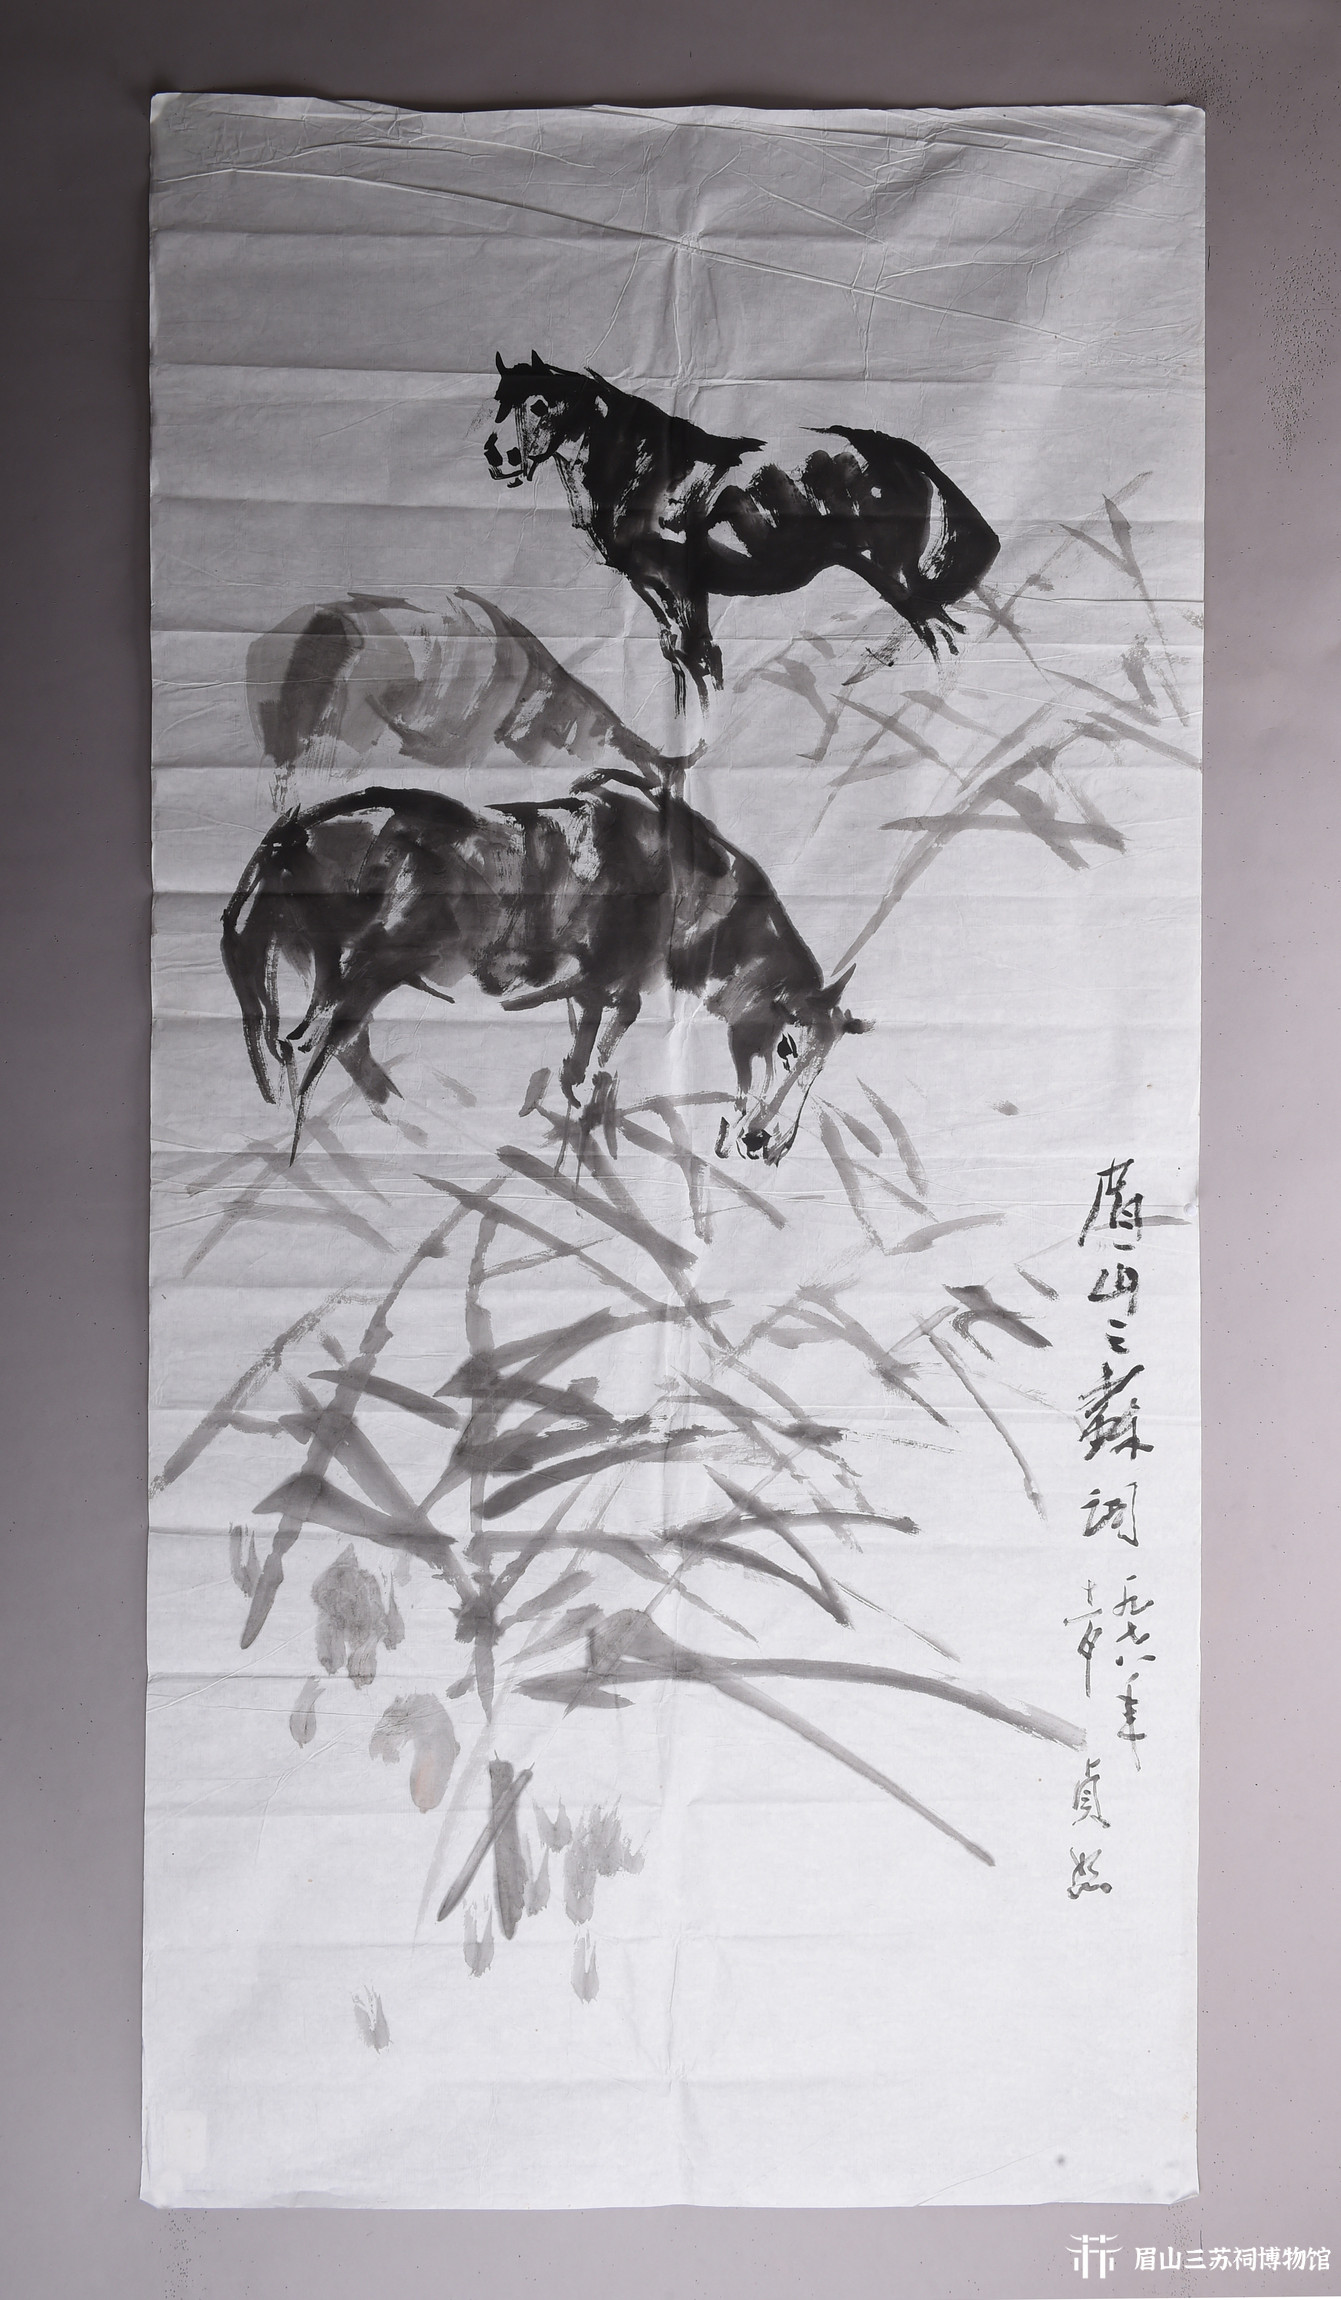 眉山三蘇祠
一九七八年
貞
眉山三苏祠博物馆